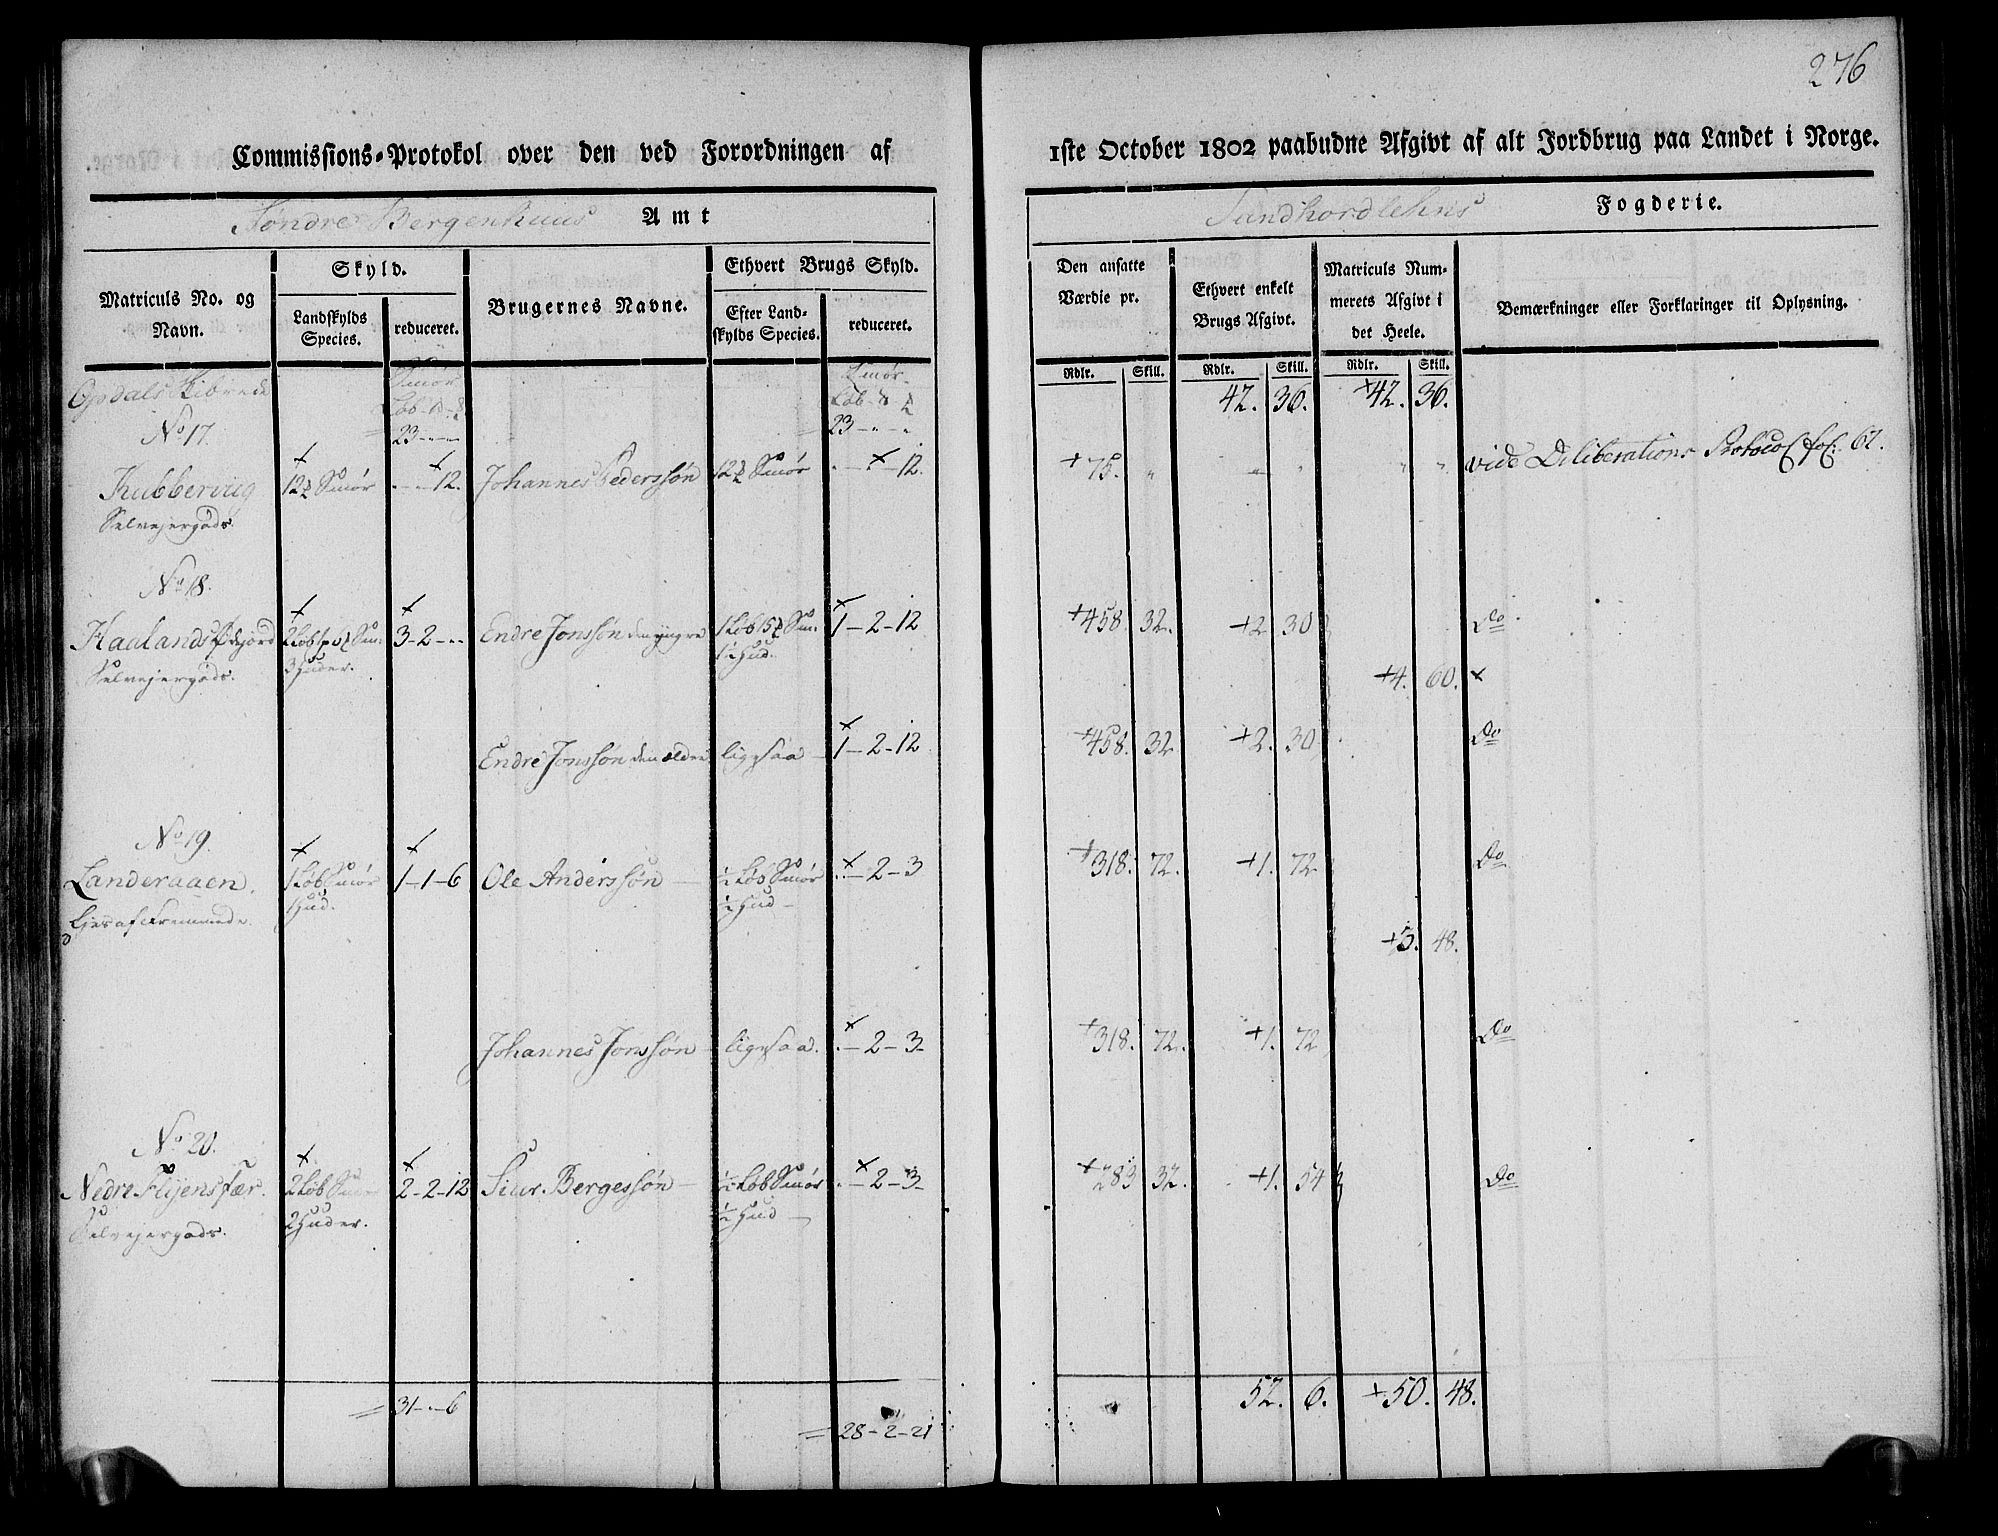 276
Commissions-Protokol over den ved Forordningen af 1ste October 1802 paabudne Afgivt af alt Jordbrug paa Landet i Norge.
Søndre Bergenhuus Amt
Sundhordlehns Fogderie.
Matriculs No. og Navn.
Skyld.
Landskylds Species.
reduceret.
Brugernes Navne.
Ethvert Brugs Skyld.
Efter Landskylds Species.
reduceret.
Den ansatte Værdie pr.
Ethvert enkelt Brugs Afgivt.
Matriculs Nummerets Afgivt i det Heele.
Bemærkninger eller Forklaringer til Oplysning.
Rdlr. Skill. Rdlr. Skill. Rdlr. Skill.
Opdals Skibrede Smør Smør 42. 36. +42. 36.
23 - " - " 23 - " - "
No 17.
Kubberviig 12 Smør - - 12. Johannes Pederssøn 12 Smør - - 12. +75. " " " " " vide Deliberations Protocol fol: 67.
Selvejergods.
No 18.
Haalands 2 Løb 3-2- Endre Jonssøn den yngre 1 Løb 15 1-2-12 +458. 32. +2 30 Do
Selvejergods. 3 Huder. Hud.
+4. 60. x
Endre Jonssøn den ældre ligesaa 1-2-12 +458. 32 +2. 30 Do
No 19.
Landeraaen. 1 Løb Smør 1-1-6 Ole Anderssøn ½ Løb Smør - 2 - 3 +318. 72. +1. 72 Do
Ejes af Fremmede. 1 Hud. ½ Hud
+3. 48.
Johannes Jonssøn ligesaa. - 2 - 3 +318. 72. +1. 72 Do
No 20.
Nedre Flyensfær. 2 Løb 2-2-12 Siur Bergessøn ½ Løb Smør - 2 - 3 +283 32. +1. 54 Do
Selvejergods. 2 Huder. ½ Hud
31 - " - 6 52. 6. +50. 48.
28 - 2 - 21